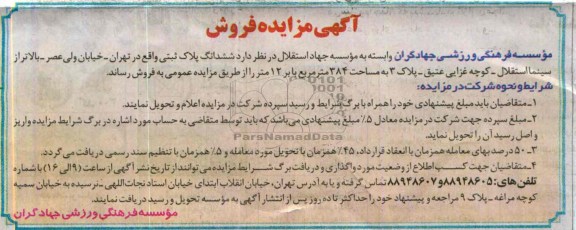 آگهی مزایده فروش
مؤسسه فرهنگی ورزشی جهادگران وابسته به مؤسسه جهاد استقلال در نظر دارد ششدانگ پلاک ثبتی واقع در تهران - خیابان ولی عصر - بالاتر از
سینما استقلال - کوچه غزایی عتیق - پلاک ۳ به مساحت ۳۸۴ متر مربع با بر ۱۲ متر را از طریق مزایده عمومی به فروش رساند.
شرایط و نحوه شرکت در مزایده:
۱- متقاضیان باید مبلغ پیشنهادی خود را همراه با برگ شرایط و رسید سپرده شرکت در مزایده اعلام و تحویل نمایند.
۲- مبلغ سپرده جهت شرکت در مزایده معادل ۵٪ مبلغ پیشنهادی می‌باشد که باید توسط متقاضی به حساب مورد اشاره در برگ شرایط مزایده واریز
و اصل رسید آن را تحویل نماید.
۳- ۵۰ درصد بهای معامله همزمان با انعقاد قرارداد، ۴۵٪ همزمان با تحویل مورد معامله و ۵٪ همزمان با تنظیم سند رسمی دریافت می‌گردد.
۴- متقاضیان جهت کسب اطلاع از وضعیت مورد واگذاری و دریافت برگ شرایط مزایده می‌توانند از تاریخ نشر آگهی از ساعت (۹ الی ۱۶) با شماره
تلفن‌های: ۸۸۹۴۸۶۰۵ و ۸۸۹۴۸۶۰۷ تماس گرفته و یا به آدرس تهران، خیابان انقلاب ابتدای خیابان استاد نجات‌اللهی - نرسیده به خیابان سمیه
کوچه مراغه - پلاک ۹ مراجعه و پیشنهاد خود را حداکثر تا ده روز پس از انتشار آگهی به مؤسسه تحویل و رسید دریافت نمایند.
مؤسسه فرهنگی ورزشی جهادگران
ParsNamadData